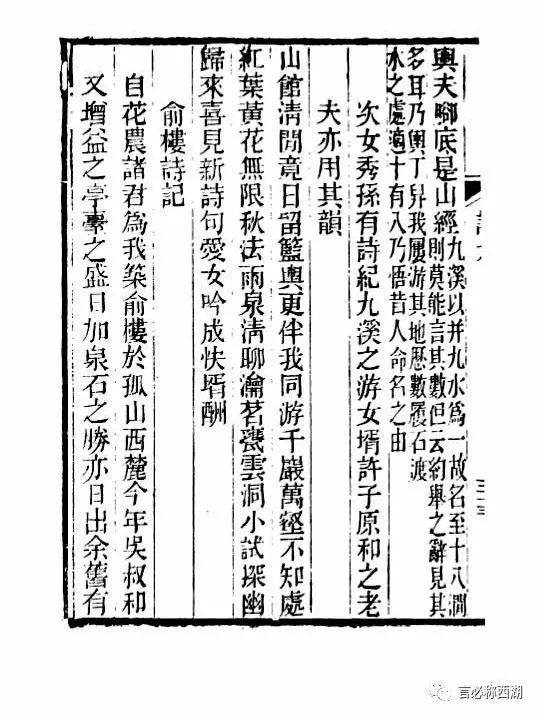 輿夫腳底是山經
九溪以并九水爲一故名至十八澗
則莫能言其數但云約舉之辭見其
多耳乃輿丁舁我屢游其地歷數履石渡
水之處適十有八乃悟昔人命名之由
次女秀孫有詩紀九溪之游女壻許子原和之老
夫亦用其韻
山館清閒竟日留籃輿更伴我同游千巖萬壑不知處
紅葉黃花無限秋法雨泉清聊瀹茗甕雲洞小試探幽
歸來喜見新詩句愛女吟成快壻酬
俞樓詩記
自花農諸君爲我築俞樓於孤山西麓今年吳叔和
又增益之亭臺之盛日加泉石之勝亦日出余舊有
言必称西湖